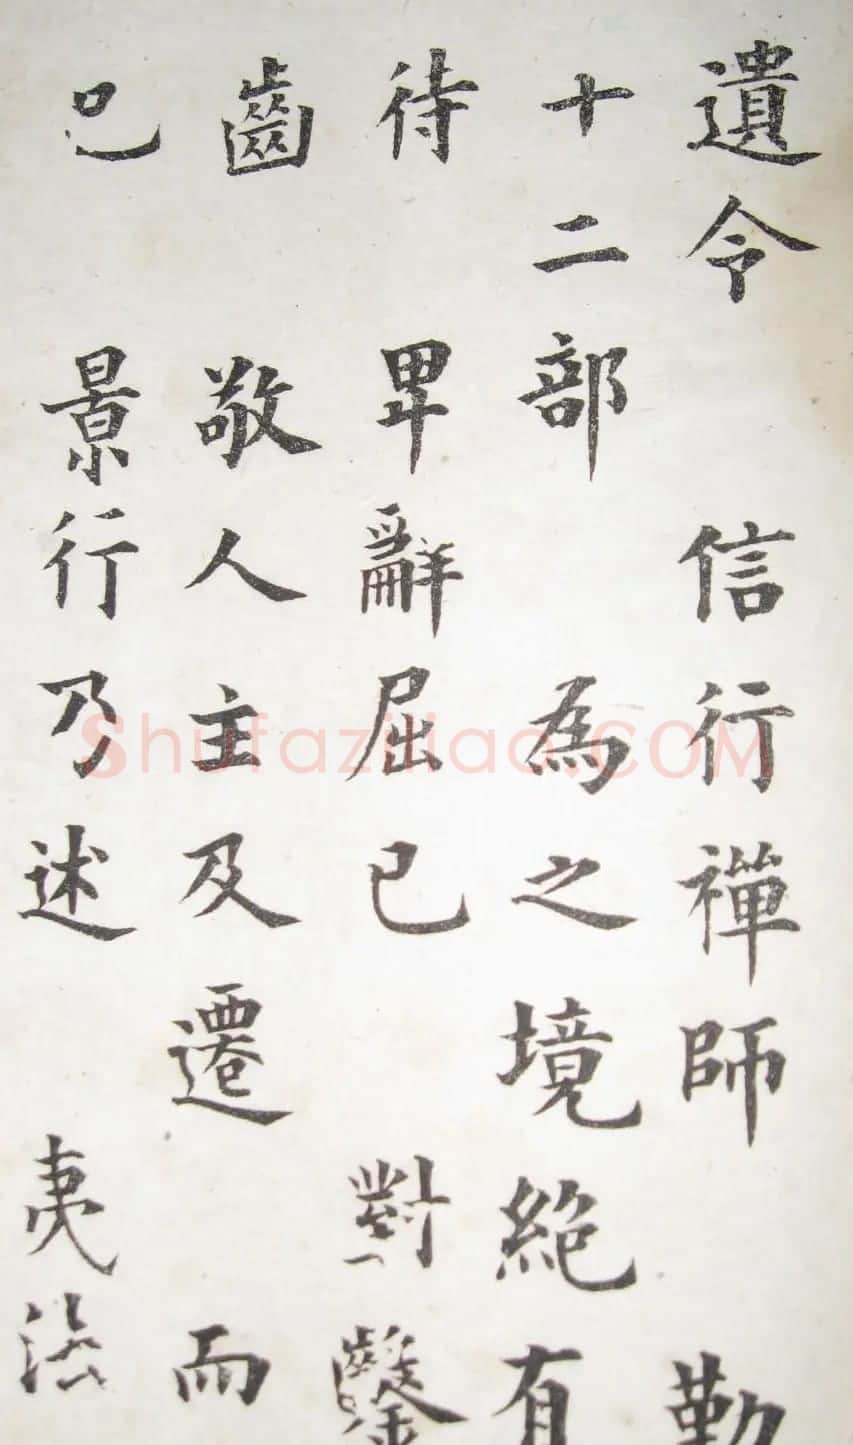 遺令 信行禪師 勤
十二部 為之境絶有
待 畢辭屈己 對鑿
齒 敬人主及遷 而
已 景行乃述 夷法
Shufaziliao.COM